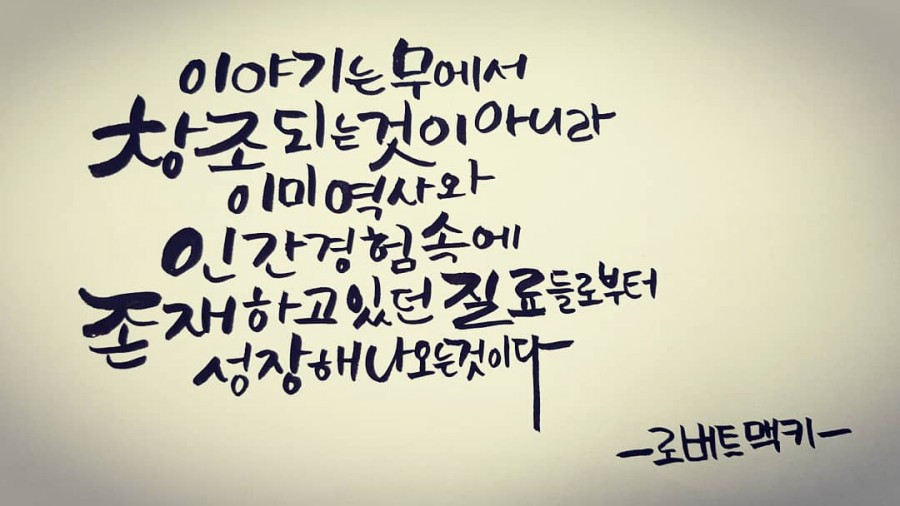 이야기는 무에서
창조되는것이아니라
이미 역사와
인간경험속에
존재하고있던 질료들로부터
성장해나오는것이다
-로버트맥키-